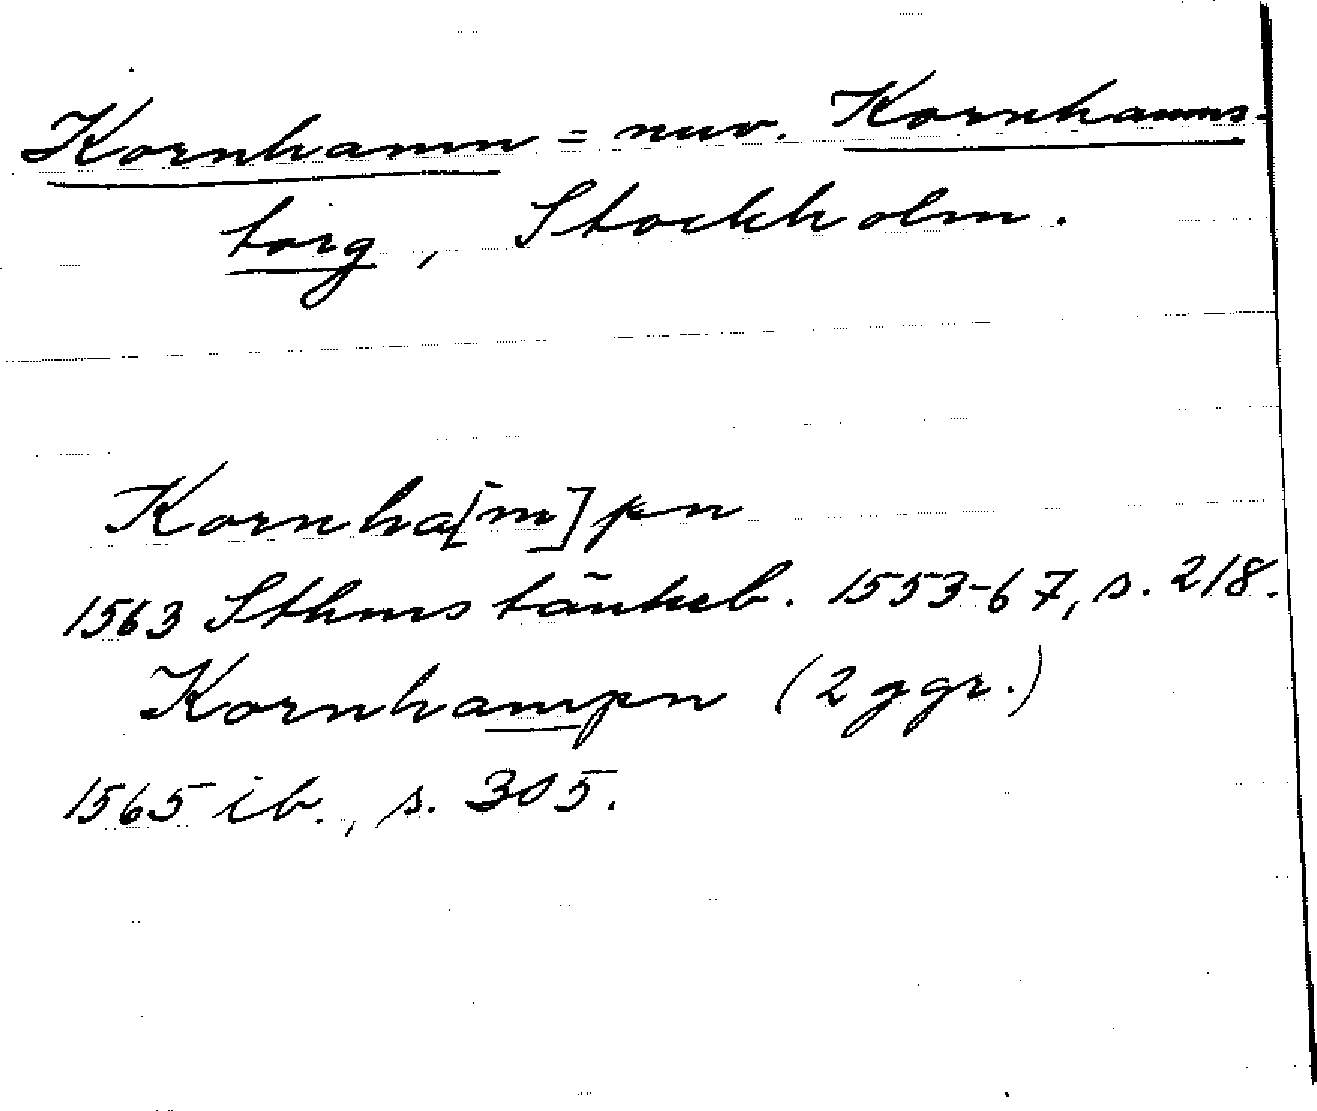 Kornhamn = nuv. Kornhamns-
torg, Stockholm.
Kornha[m]pn
1563 Sthms tänkeb. 1553-67, s. 218.
Kornhampn (2 ggr.)
1565 ib., s. 305.